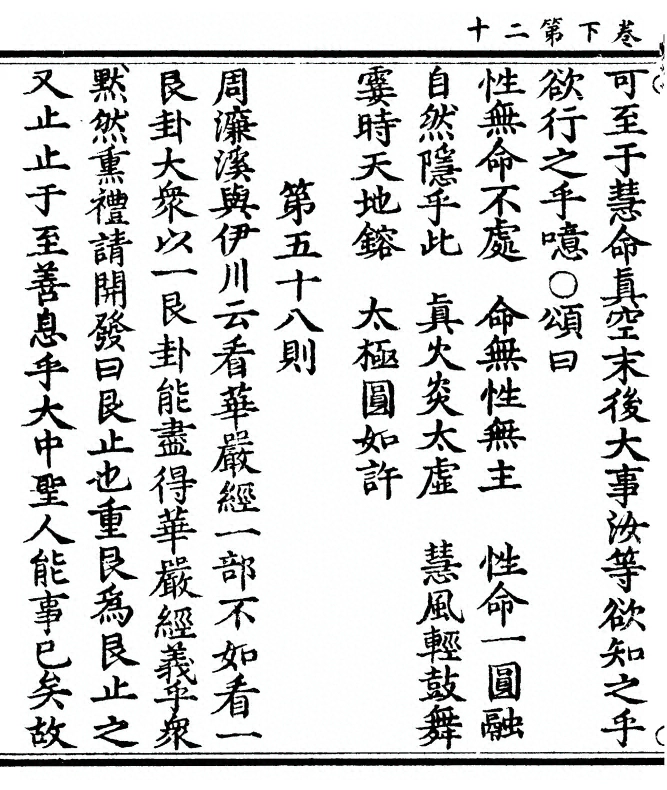 卷下第二十
可至于慧命眞空末後大事汝等欲知之乎
欲行之乎噫○頌曰
性無命不處　命無性無主　性命一圓融
自然隱乎此　眞火炎太虛　慧風輕鼓舞
霎時天地鎔　太極圓如許
第五十八則
周濂溪與伊川云看華嚴經一部不如看一
艮卦大衆以一艮卦能盡得華嚴經義乎衆
默然熏禮請開發曰艮止也重艮爲艮止之
又止止于至善息乎大中聖人能事已矣故